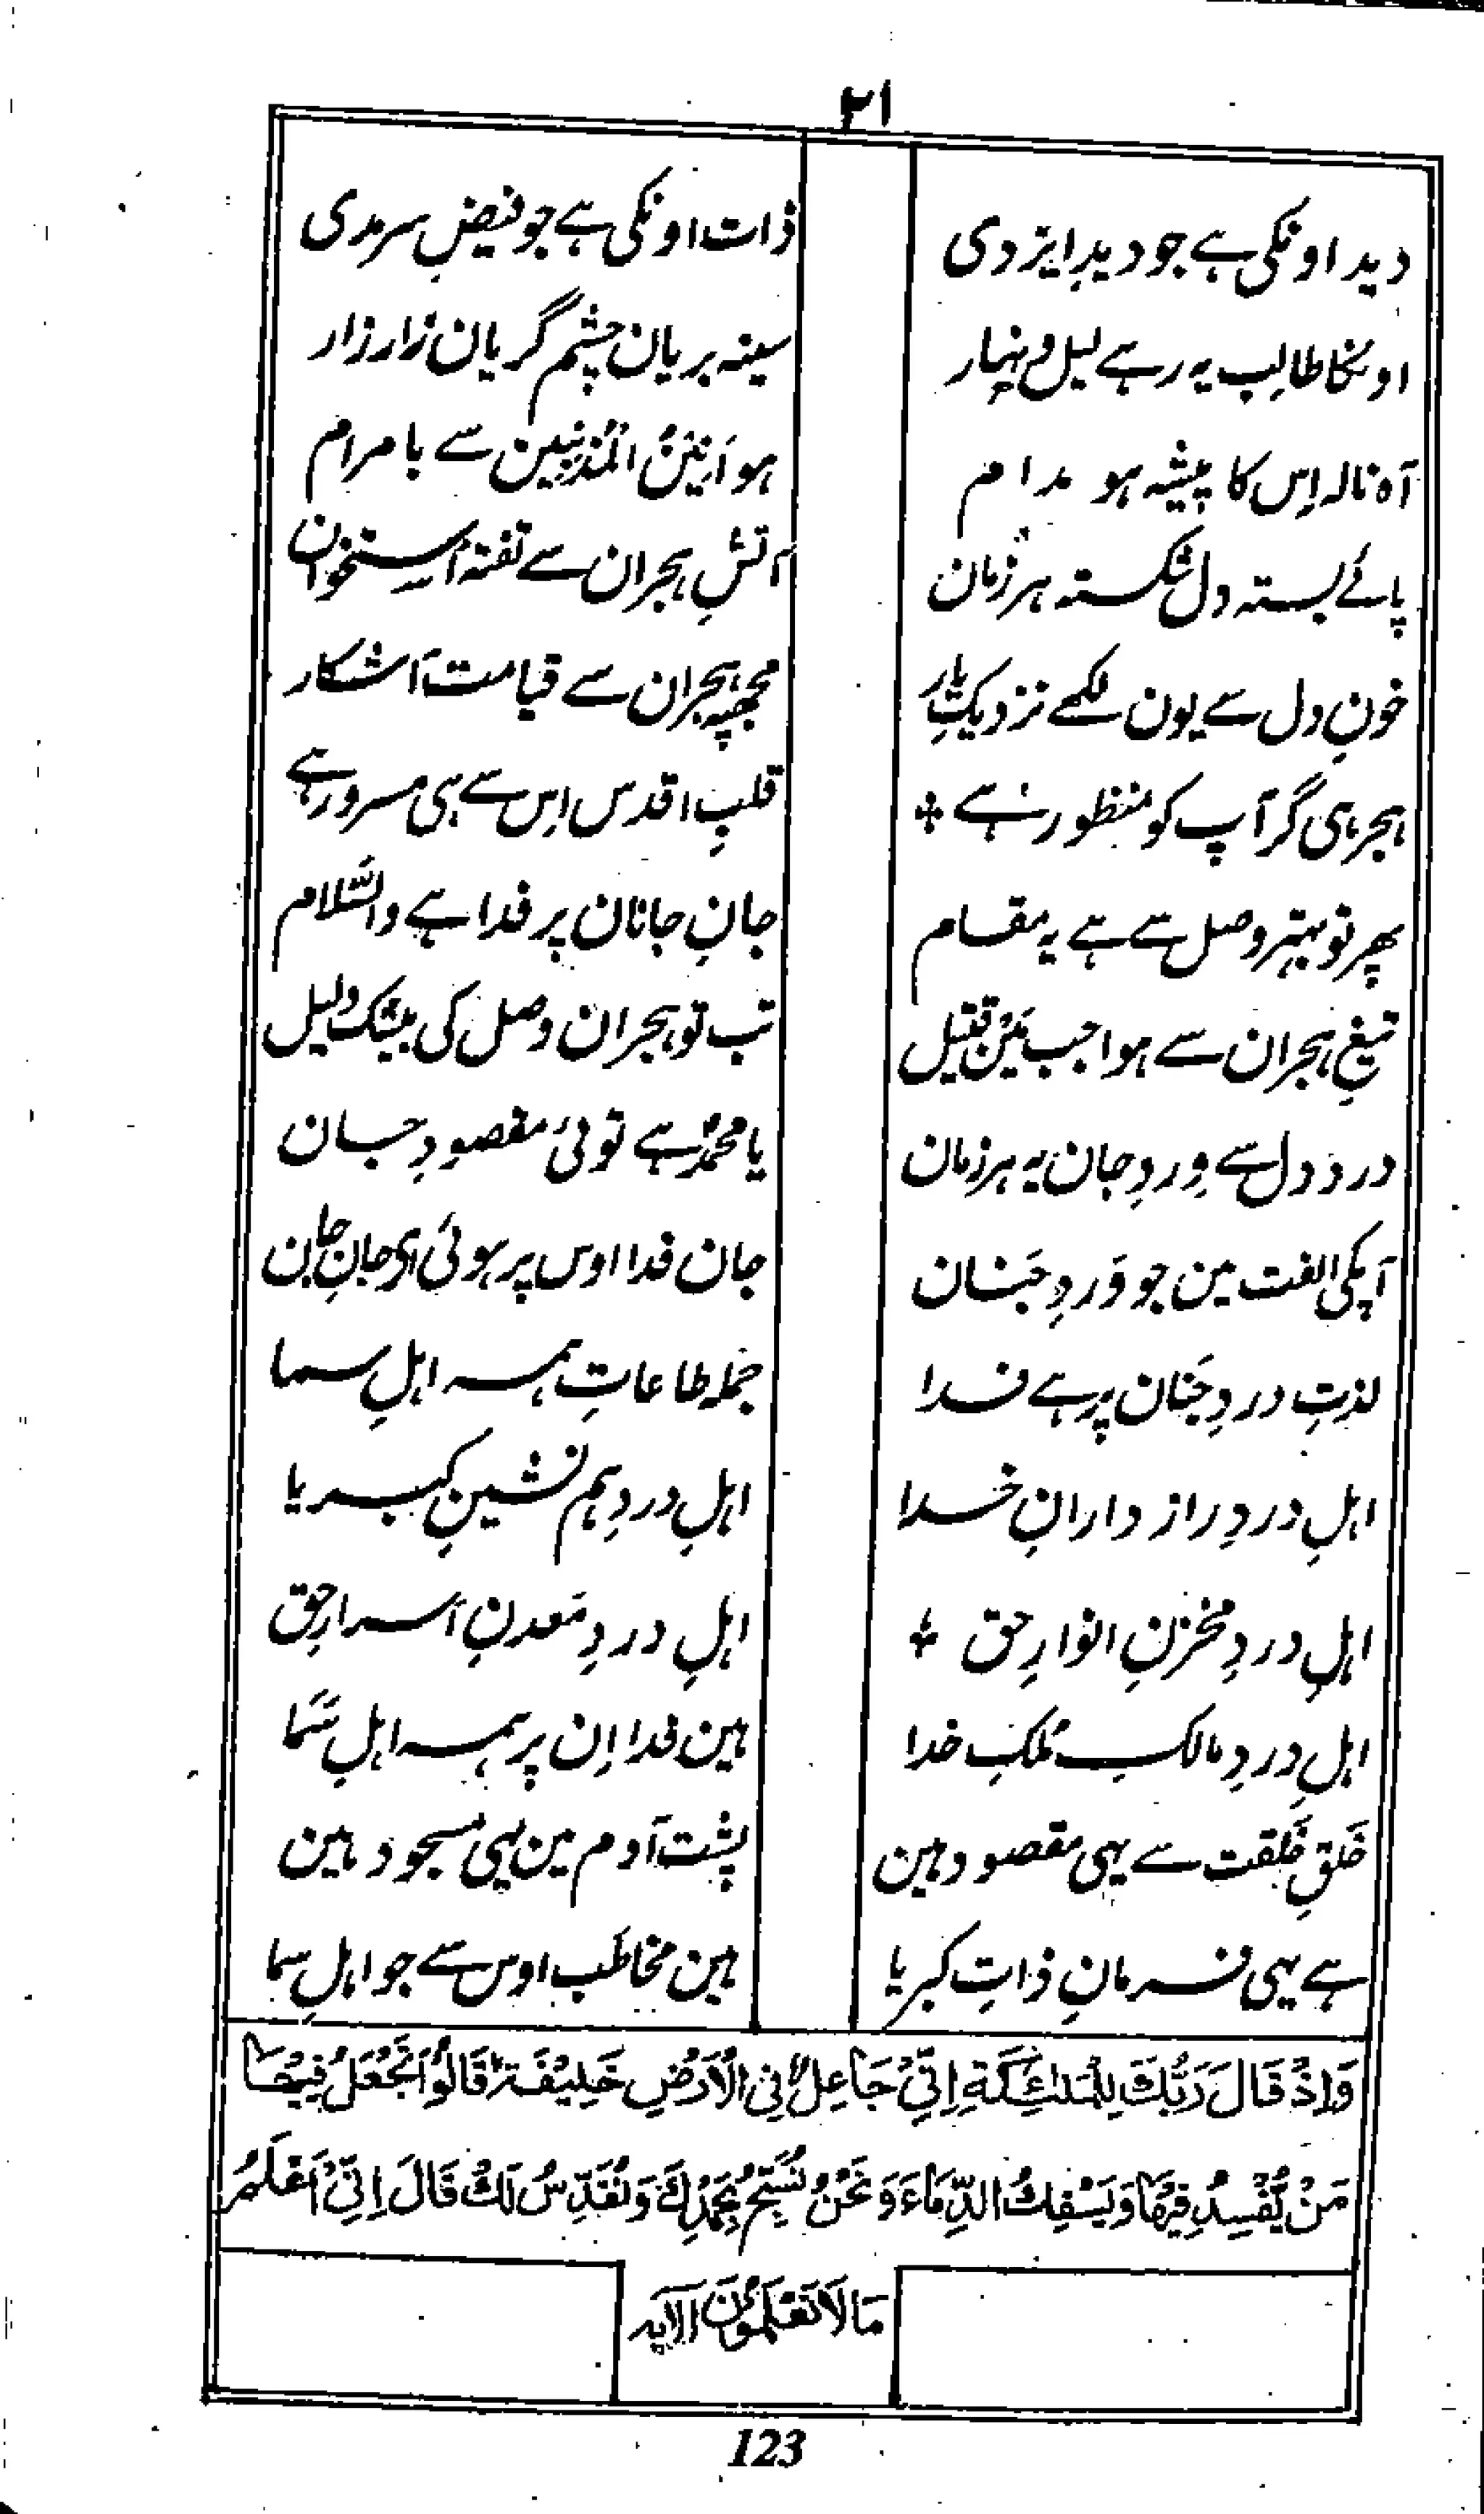 ۲۱
دید اونکی ہے جو دیدِ ایزدی ذات اونکی ہے جو فیضِ سرمدی
اونکا طالب یہ رہے لیل و نہار سینہ بریان چشم گریان زار زار
آہ نالہ اِس کا پیشہ ہو مدام ہو اَنِیْنُ المُذْنِبِین سے با مرام
پائے بستہ دل شکستہ ہر زمان آتشِ ہجران سے تفتہ استخوان
خونِ دل سے یون لکھے نزدیکِ یار مجھپہ ہجران سے قیامت آشکار
ہجر ہی گر آپ کو منظور ہے ٭ قلبِ اقدس اِس سے ہی مسرور ہے
پھر تو بہتر وصل سے ہے یہ مقام جانِ جانان پر فدا ہے والسَّلام
تیغِ ہجران سے ہوا جب مَیْن قتیل تب تو ہجران وصل کی بیشک دلیل
درد دل سے وِردِ جان یہ ہر زمان یا محمدؐ ہے توئی مقصودِ جان
آپکی الفت مین جو دَردِ جَنان جان فدا اوس پر ہوئی ای جانِ جان
لذتِ دردِ جَنان پر ہے فدا جملہ طاعاتِ ہمہ اہلِ سما
اہلِ دردِ راز دارانِ خدا اہلِ دردِ ہم نشینِ کبریا
اہلِ دردِ مخزنِ انوارِ حق ٭ اہلِ دردِ مَعدنِ اسرارِ حق
اہلِ دردِ مالکِ مُلکِ خدا ہین فدا اِن پر ہمہ اہلِ سَما
خَلقِ خَلقت سے یہی مقصود ہین پشت آدم مین یہی مسجود ہین
ہے یہی فرمانِ ذاتِ کبریا ہین مخاطَب اوس سے جو اہلِ سما
وَاِذْ قَالَ رَبُّكَ لِلْمَلٰٓئِكَةِ اِنِّیْ جَاعِلٌ فِی الْاَرْضِ خَلِیْفَةً قَالُوْا اَتَجْعَلُ فِیْهَا
مَنْ یُّفْسِدُ فِیْهَا وَیَسْفِكُ الدِّمَاءَ وَنَحْنُ نُسَبِّحُ بِحَمْدِكَ وَنُقَدِّسُ لَكَ قَالَ اِنِّیْ اَعْلَمُ
مَا لَا تَعْلَمُوْنَ الآیہ
123